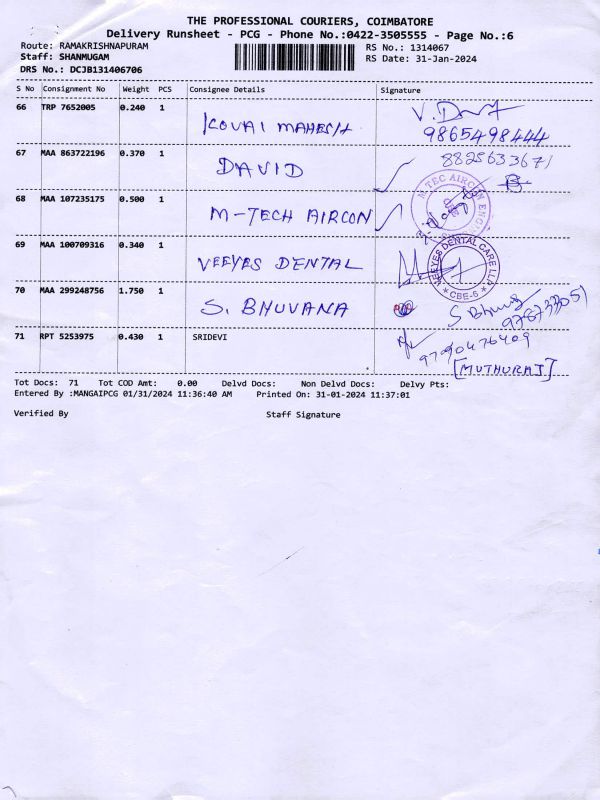 THE PROFESSIONAL COURIERS, COIMBATORE
Delivery Runsheet - PCG - Phone No.:0422-3505555 - Page No.:6
Route: RAMAKRISHNAPURAM RS No.: 1314067
Staff: SHANMUGAM RS Date: 31-Jan-2024
DRS No.: DCJB131406706
S No Consignment No Weight PCS Consignee Details Signature
66 TRP 7652005 0.240 1 KOVAI MAHESH
9865498444
67 MAA 863722196 0.370 1 DAVID 8825633671
68 MAA 107235175 0.500 1 M-TECH AIRCON M TEC AIRCON
69 MAA 100709316 0.340 1 VEEYES DENTAL VEEYES DENTAL CARE LLP
* CBE-6 *
70 MAA 299248756 1.750 1 S. BHUVANA
71 RPT 5253975 0.430 1 SRIDEVI 9790476409
[MUTHURAJ]
Tot Docs: 71 Tot COD Amt: 0.00 Delvd Docs: Non Delvd Docs: Delvy Pts:
Entered By :MANGAIPCG 01/31/2024 11:36:40 AM Printed On: 31-01-2024 11:37:01
Verified By Staff Signature